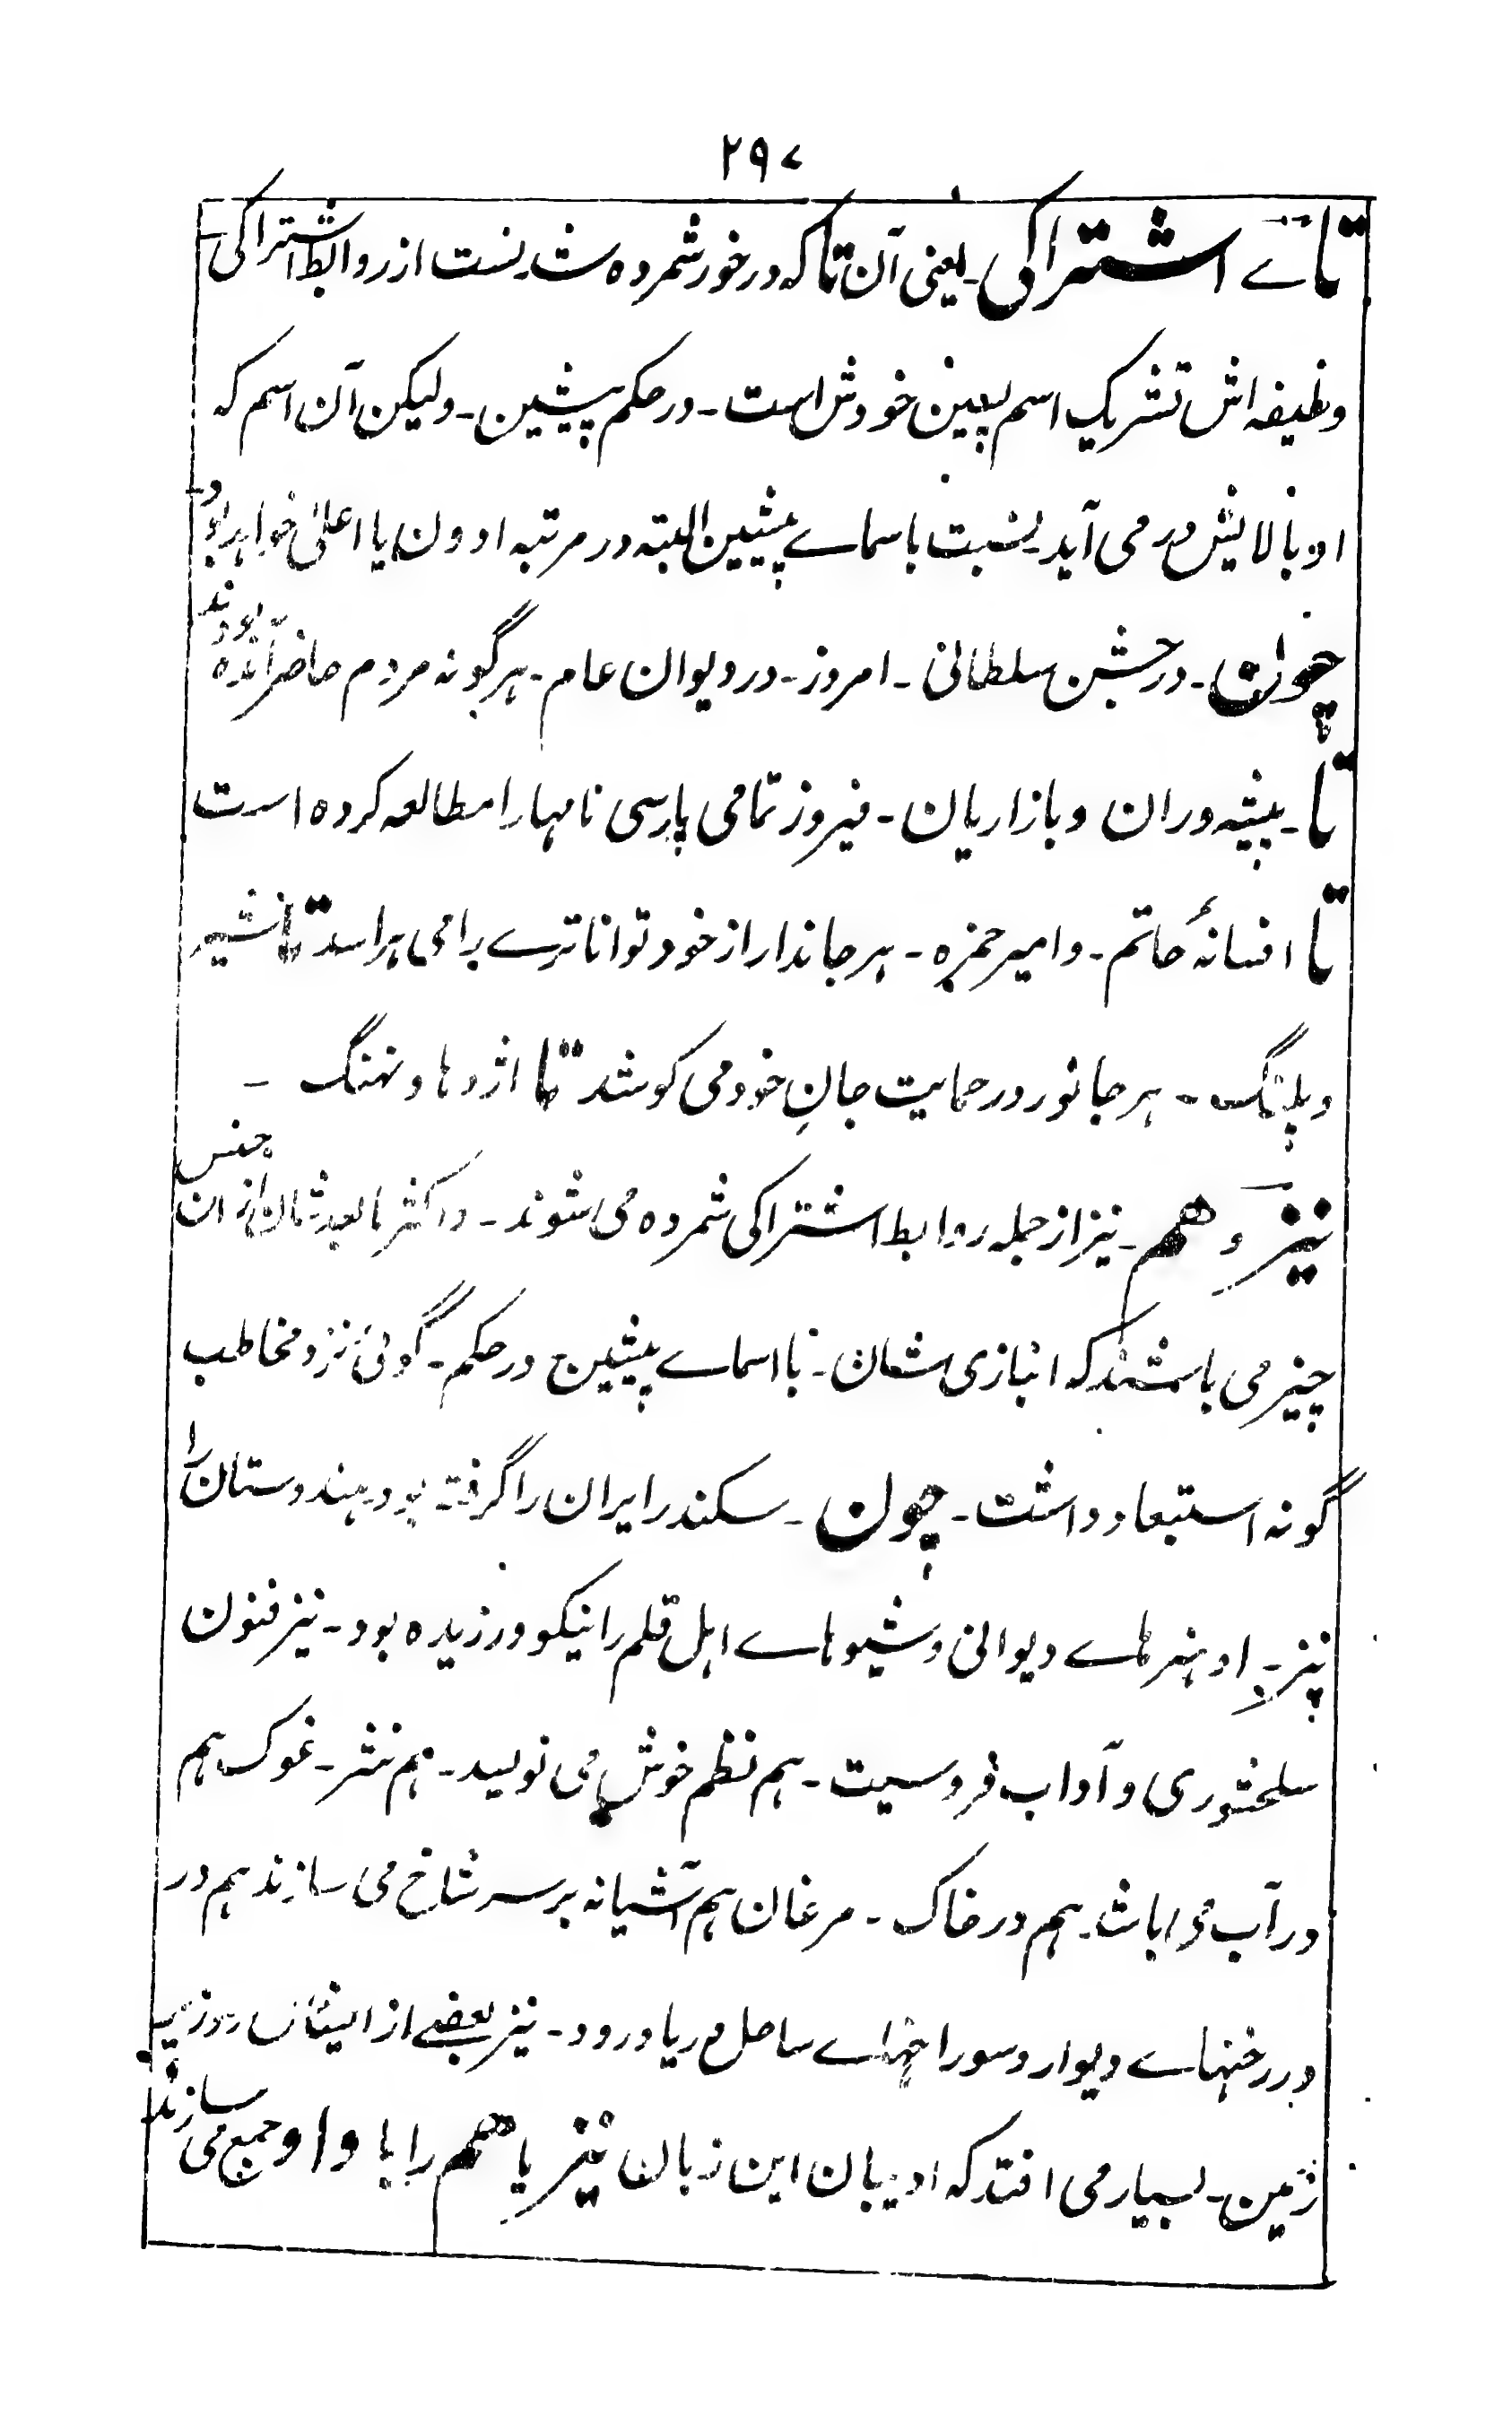 ۲۹۷
تاے اشتراکی۔ یعنی آن تا کہ در خور شمردہ شدنست از روابط اشتراکی
وظیفہ اش تشریک اسم پسین خودش است۔ در حکم پیشین۔ ولیکن آن اسم کہ
او بالایش درمی آید نسبت باسماے پیشین البتہ در مرتبہ ادون یا اعلیٰ خواہد بود
چون۔ در جشن سلطانی۔ امروز۔ در دیوان عام۔ ہر گونہ مردم حاضر آمدہ بودند
تا۔ پیشہ وران و بازاریان۔ فیروز تمامی پارسی نامہا را مطالعہ کردہ است
تا افسانۂ حاتم۔ و امیر حمزہ۔ ہر جاندار از خود توانا ترے را می ہراسد تا شیر
و پلنگ۔ ہر جانور در حمایت جانِ خود می کوشد تا اژدہا و نہنگ ۔
نیز و ہم۔ نیز از جملہ روابط اشتراکی شمردہ می شوند۔ و اکثر مابعد شان از ان جنس
چیز می باشند کہ انبازی شان۔ با اسماے پیشین در حکم۔ گوئی نزد مخاطب
گونہ استبعاد داشت۔ چون۔ سکندر ایران را گرفتہ بود ہندوستان را
نیز۔ او ہنر ہاے دیوانی و شیوہاے اہل قلم را نیکو ورزیدہ بود۔ نیز فنون
سلحشوری و آداب فروسیت۔ ہم نظم خوش می نویسد۔ ہم نثر۔ غوک ہم
در آب می باشد۔ ہم در خاک۔ مرغان ہم آشیانہ بر سر شاخ می سازند ہم در
در رخنہاے دیوار و سوراخہاے ساحل دریا و رود۔ نیز بعضے از ایشان در زیر
زمین۔ بسیار می افتد کہ ادیبان این زبان نیز یا ہم را با واو جمع می سازند